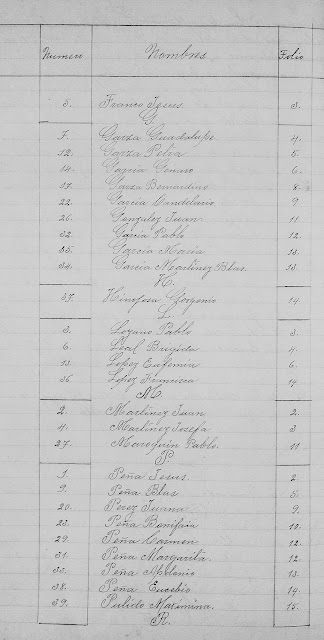 Numero Nombres Folio
5. Franco Jesus 3.
G.
7. Garza Guadalupe 4.
12. Garza Petra 5.
14. Garcia Genaro 6.
17. Garza Bernardino 8.
22. Garcia Candelario 9
26. Gonzalez Juan 11
32. Garcia Pablo 12.
33. Garcia Maria 13.
34. Garcia Martinez Blas. 13.
H.
37. Hinojosa 14.
L.
3. Lozano Pablo 3.
6. Leal Brigida 4.
13. Lopez Eufemia 6.
36. Lopez Francisca 14
M.
2. Martinez Juan 2.
4. Martinez Josefa 3
27. Pablo. 11
P.
1. Peña Jesus. 2
9. Peña Blas 5.
20. Perez Juana 9.
23. Peña Bonifica 10.
29. Peña Carmen 12.
31. Peña Margarita 12.
35. Peña Apolonio 13.
38. Peña Eucebio 14.
39. Pulido 15.
R.